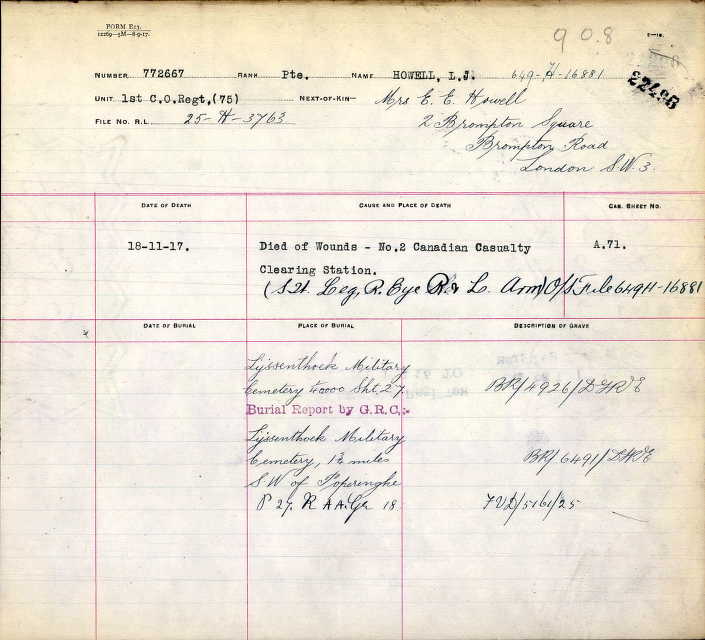 FORM E13.
12269—5M—8-9-17.
908
NUMBER 772667 RANK Pte. NAME HOWELL, L.J. 649-H-16881
UNIT 1st C.O.Regt,(75) NEXT-OF-KIN— Mrs E. E. Howell
FILE NO. R.L. 25-H-3763 2 Brompton Square
Brompton Road
London S.W.3.
DATE OF DEATH CAUSE AND PLACE OF DEATH CAS. SHEET NO.
18-11-17. Died of Wounds - No.2 Canadian Casualty A.71.
Clearing Station.
(S.W. Leg, R. Eye R. & L. Arm) O/S File 649H-16881
DATE OF BURIAL PLACE OF BURIAL DESCRIPTION OF GRAVE
Lijssenthoek Military
Cemetery 40000 Sht. 27. BR/4926/D.G.R.E
Burial Report by G.R.C.:-
Lijssenthoek Military
Cemetery, 1¾ miles BR/6491/DGRE
S.W of Poperinghe
P 27. R AA. Gr 18